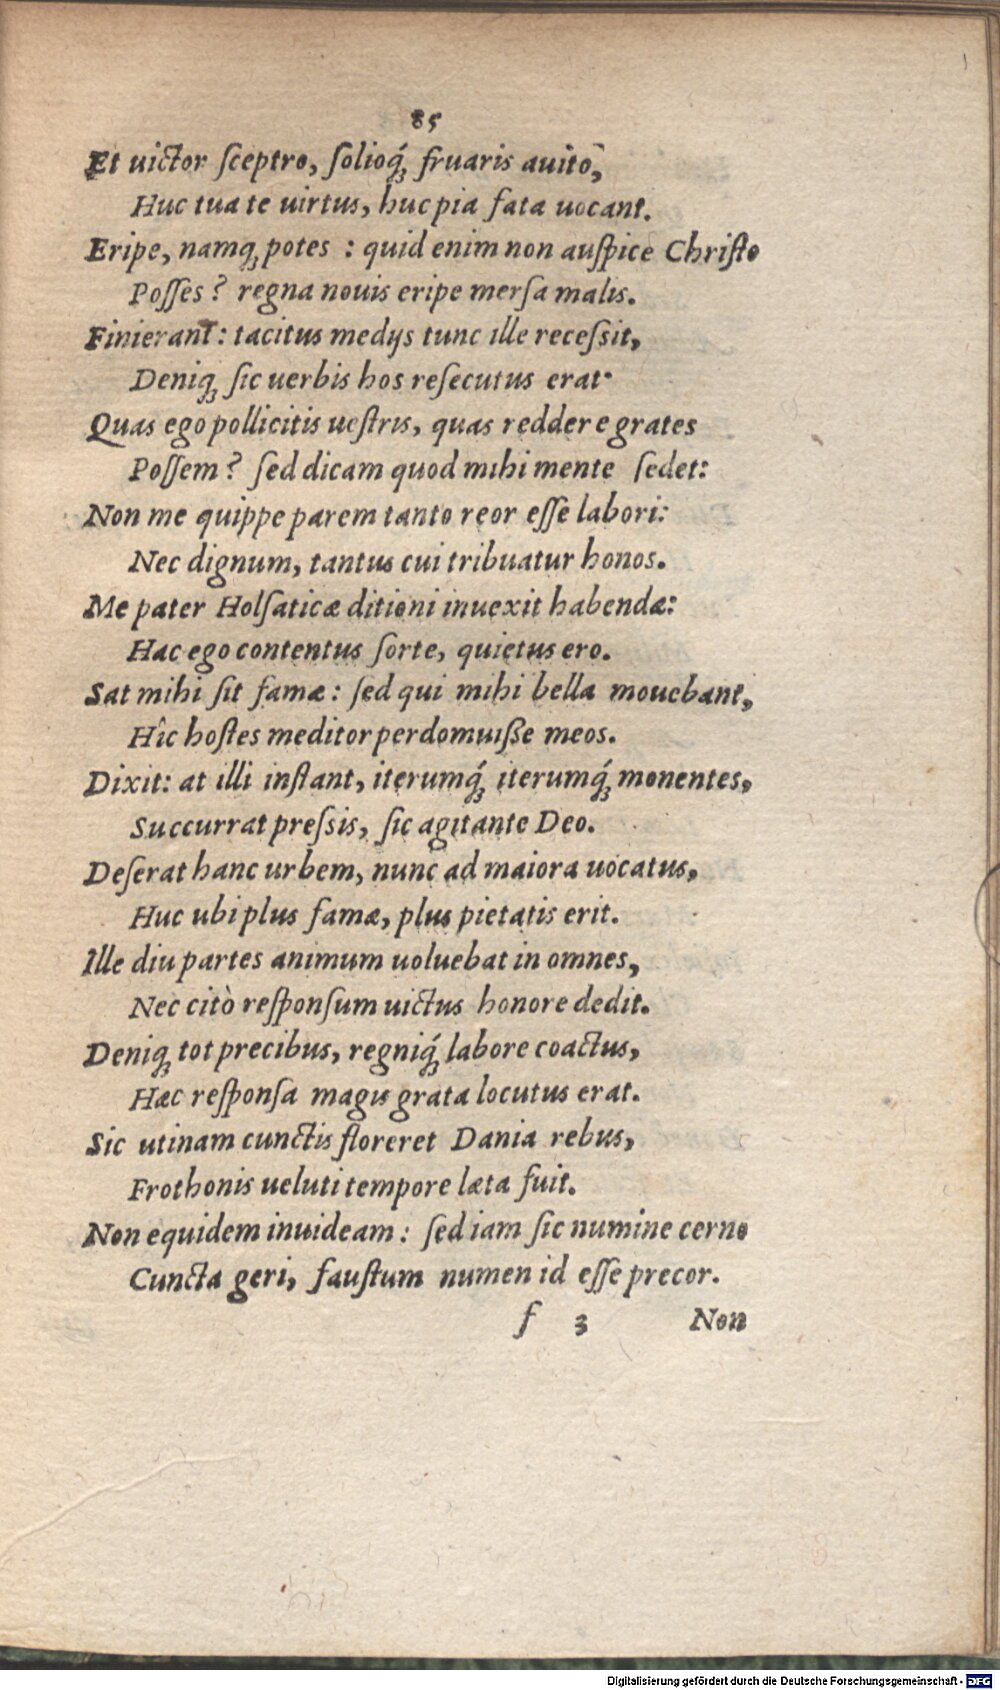 85
Et uictor ſceptro, ſolioq́ꝫ fruaris auito,
Huc tua te uirtus, huc pia fata uocant.
Eripe, namqꝫ potes : quid enim non auſpice Chriſto
Poſſes ? regna nouis eripe merſa malis.
Finierant : tacitus medijs tunc ille receſsit,
Deniqꝫ ſic uerbis hos reſecutus erat·
Quas ego pollicitis ueſtris, quas reddere grates
Poſſem ? ſed dicam quod mihi mente ſedet:
Non me quippe parem tanto reor eſſe labori:
Nec dignum, tantus cui tribuatur honos.
Me pater Holſaticæ ditioni inuexit habendæ:
Hac ego contentus ſorte, quietus ero.
Sat mihi ſit famæ : ſed qui mihi bella mouebant,
Hîc hoſtes meditor perdomuiſſe meos.
Dixit: at illi inſtant, iterumq́ꝫ iterumq́ꝫ monentes,
Succurrat preſsis, ſic agitante Deo.
Deſerat hanc urbem, nunc ad maiora uocatus,
Huc ubi plus famæ, plus pietatis erit.
Ille diu partes animum uoluebat in omnes,
Nec citò reſponſum uictus honore dedit.
Deniqꝫ tot precibus, regniq́ꝫ labore coactus,
Hæc reſponſa magis grata locutus erat.
Sic utinam cunctis floreret Dania rebus,
Frothonis ueluti tempore læta fuit.
Non equidem inuideam : ſed iam ſic numine cerno
Cuncta geri, fauſtum numen id eſſe precor.
f 3 Non
Digitalisierung gefördert durch die Deutsche Forschungsgemeinschaft - DFG